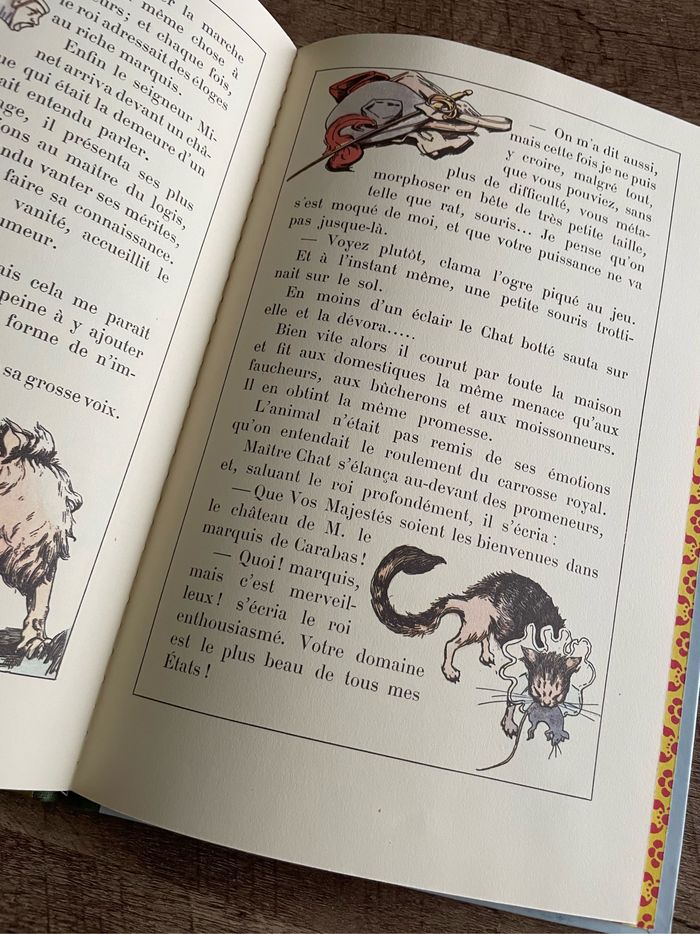 er la marche
même chose à
eurs; et chaque fois,
le roi adressait des éloges
au riche marquis.
Enfin le seigneur Mi-
net arriva devant un châ-
ue qui était la demeure d'un
ait entendu parler.
age, il présenta ses plus
ions au maître du logis,
ndu vanter ses mérites,
faire sa connaissance.
vanité, accueillit le
umeur.
ais cela me paraît
peine à y ajouter
forme de n'im-
sa grosse voix.
— On m'a dit aussi,
mais cette fois je ne puis
y croire, malgré tout,
que vous pouviez, sans
plus de difficulté, vous méta-
morphoser en bête de très petite taille,
telle que rat, souris... Je pense qu'on
s'est moqué de moi, et que votre puissance ne va
pas jusque-là.
— Voyez plutôt, clama l'ogre piqué au jeu.
Et à l'instant même, une petite souris trotti-
nait sur le sol.
En moins d'un éclair le Chat botté sauta sur
elle et la dévora.....
Bien vite alors il courut par toute la maison
et fit aux domestiques la même menace qu'aux
faucheurs, aux bûcherons et aux moissonneurs.
Il en obtint la même promesse.
L'animal n'était pas remis de ses émotions
qu'on entendait le roulement du carrosse royal.
Maître Chat s'élança au-devant des promeneurs,
et, saluant le roi profondément, il s'écria :
— Que Vos Majestés soient les bienvenues dans
le château de M. le
marquis de Carabas !
— Quoi ! marquis,
mais c'est merveil-
leux ! s'écria le roi
enthousiasmé. Votre domaine
est le plus beau de tous mes
États !